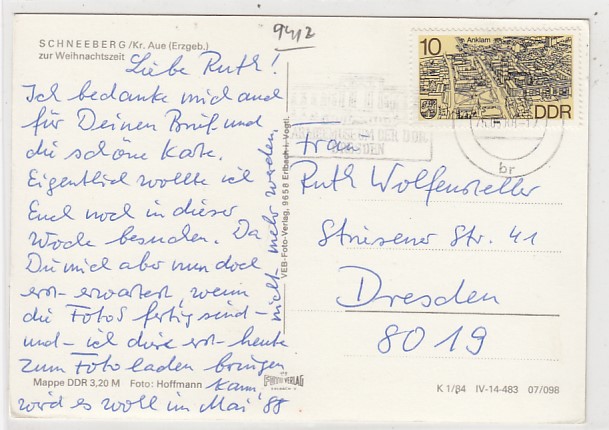 9412
SCHNEEBERG/Kr. Aue (Erzgeb.)
zur Weihnachtszeit
Liebe Ruth!
Ich bedanke mich auch
für Deinen Brief und
die schöne Karte.
Eigentlich wollte ich
Euch noch in dieser
Woche besuchen. Da
Du mich aber nun doch
erst erwartest, wenn
die Fotos fertig sind –
und ich diese erst heute
zum Fotoladen bringen
kann
wird es wohl im Mai '88
nicht mehr werden.
Mappe DDR 3,20 M Foto: Hoffmann
VEB-Foto-Verlag, 9658 Erlbach i. Vogtl.
FOTO VERLAG
10
Anklam
DDR
ARMEEMUSEUM DER DDR
DRESDEN
br
Frau
Ruth
Striesener Str. 41
Dresden
8019
K 1/84 IV-14-483 07/098